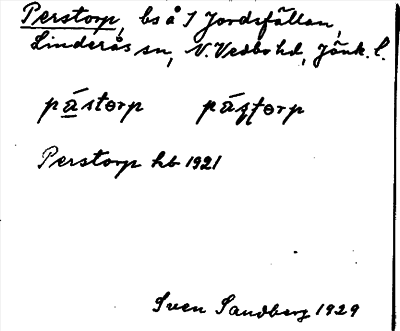 Perstorp, bs å 1 Jordsfällan,
Linderås sn, N. Vedbo hd, Jönk. l.
pástorp páʂʈorp
Perstorp hb 1921
Sven Sandberg 1929